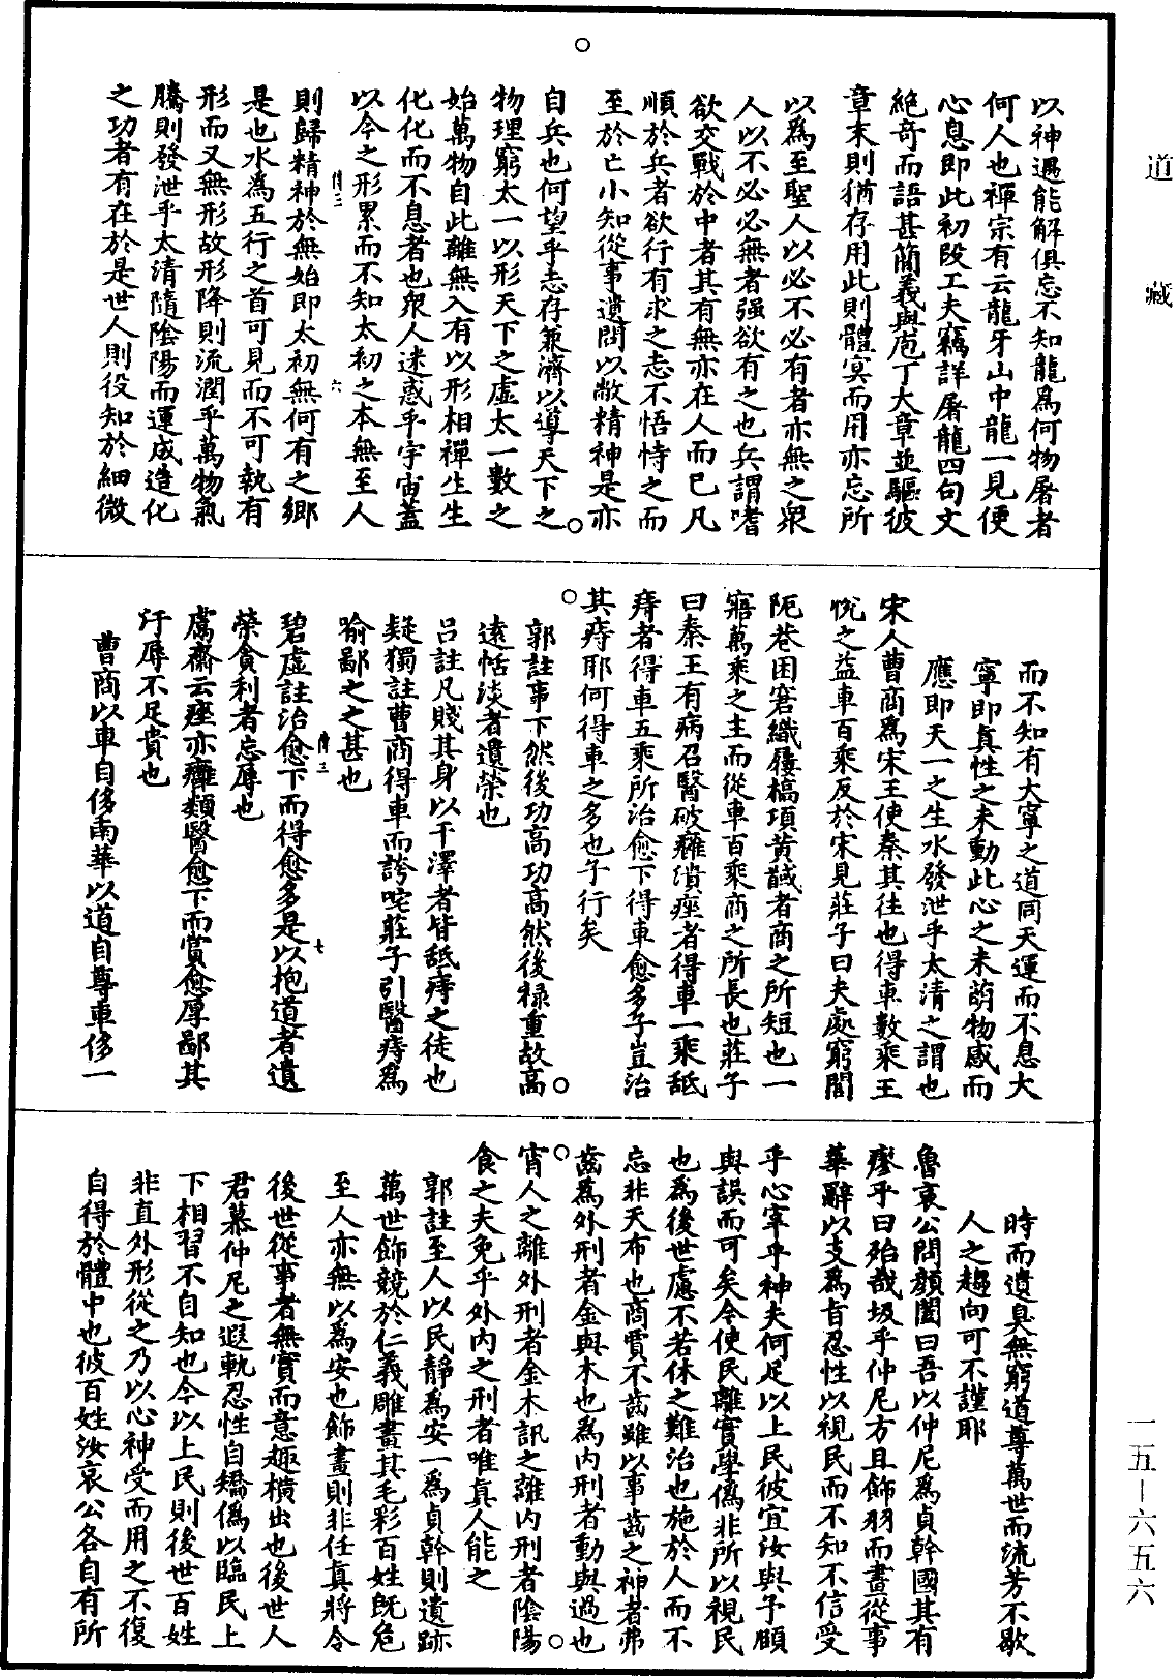 道藏
以神遇能解俱忘不知龍爲何物屠者
何人也禪宗有云龍牙山中龍一見便
心息即此初段工夫竊詳屠龍四句文
絕奇而語甚簡義與庖丁大章並驅彼
章末則猶存用此則體冥而用亦忘所
以爲至聖人以必不必有者亦無之衆
人以不必必無者强欲有之也兵謂嗜
欲交戰於中者其有無亦在人而已凡
順於兵者欲行有求之志不悟恃之而
至於亡小知從事遺問以敝精神是亦
自兵也何望乎志存兼濟以導天下之
物理窮太一以形天下之虛太一數之
始萬物自此離無入有以形相禪生生
化化而不息者也衆人迷惑乎宇宙蓋
以今之形累而不知太初之本無至人
則歸精神於無始即太初無何有之鄉
是也水爲五行之首可見而不可執有
形而又無形故形降則流潤乎萬物氣
騰則發泄乎太清隨陰陽而運成造化
之功者有在於是世人則役知於細微
而不知有大寧之道同天運而不息大
寧即真性之未動此心之未萌物感而
應即天一之生水發泄乎太清之謂也
宋人曹商爲宋王使秦其往也得車數乘王
悅之益車百乘反於宋見莊子曰夫處窮閭
阨巷困窘織屨槁項黃馘者商之所短也一
寤萬乘之主而從車百乘商之所長也莊子
曰秦王有病召醫破癰潰痤者得車一乘舐
痔者得車五乘所治愈下得車愈多子豈治
其痔耶何得車之多也子行矣
郭註事下然後功高功高然後禄重故高
遠恬淡者遺榮也
呂註凡賤其身以干澤者皆舐痔之徒也
疑獨註曹商得車而誇咤莊子引醫痔爲
喻鄙之之甚也
碧虛註治愈下而得愈多是以抱道者遺
榮貪利者忘辱也
鬳齋云痤亦癰類醫愈下而賞愈厚鄙其
汙辱不足貴也
曹商以車自侈南華以道自尊車侈一
時而遺臭無窮道尊萬世而流芳不歇
人之趨向可不謹耶
魯哀公問顏闔曰吾以仲尼爲貞幹國其有
瘳乎曰殆哉圾乎仲尼方且飾羽而畫從事
華辭以支爲旨忍性以視民而不知不信受
乎心宰乎神夫何足以上民彼宜汝與予頤
與誤而可矣令使民離實學僞非所以視民
也爲後世慮不若休之難治也施於人而不
忘非天布也商賈不齒雖以事齒之神者弗
齒爲外刑者金與木也爲內刑者動與過也
宵人之離外刑者金木訊之離內刑者陰陽
食之夫免乎外內之刑者唯真人能之
郭註至人以民靜爲安一爲貞幹則遺跡
萬世飾競於仁義雕畫其毛彩百姓既危
至人亦無以爲安也飾畫則非任真將令
後世從事者無實而意趣橫出也後世人
君慕仲尼之遐軌忍性自矯僞以臨民上
下相習不自知也今以上民則後世百姓
非直外形從之乃以心神受而用之不復
自得於體中也彼百姓汝哀公各自有所
一五—六五六